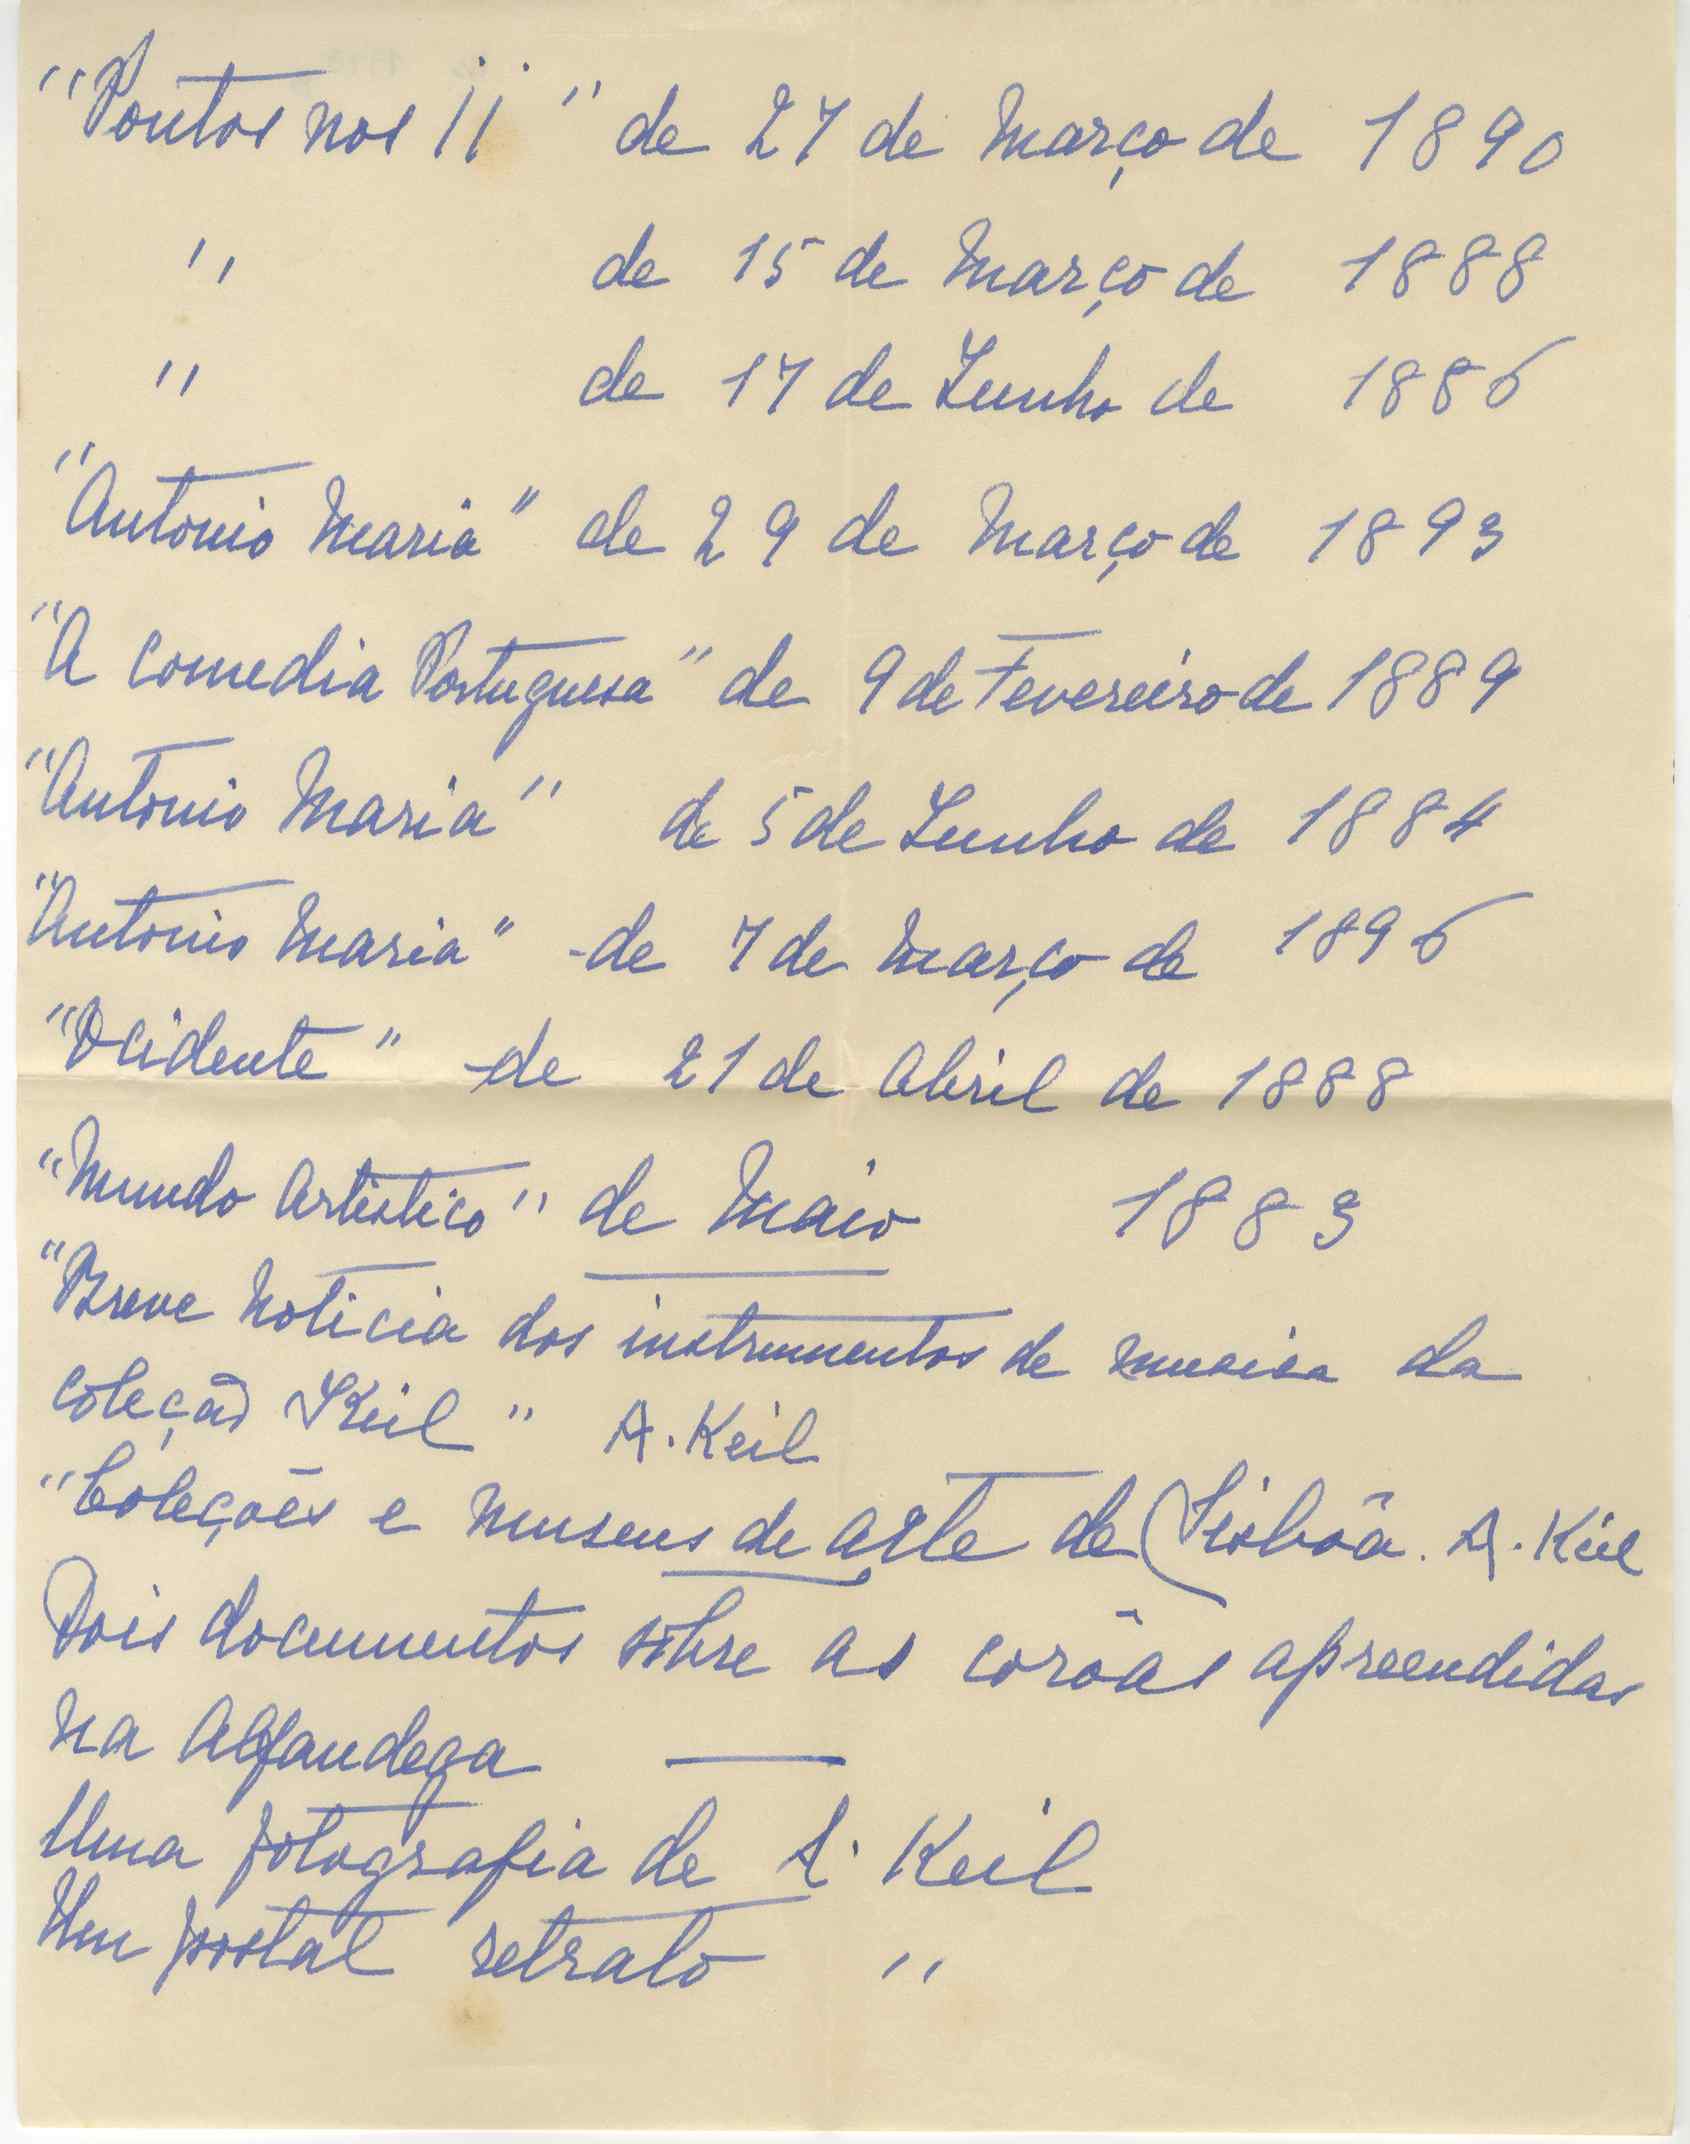 "Pontos nos ii" de 27 de Março de 1890
" de 15 de Março de 1888
" de 17 de Junho de 1886
"Antonio Maria" de 29 de Março de 1893
"A comedia Portuguesa" de 9 de Fevereiro de 1889
"Antonio Maria" de 5 de Junho de 1884
"Antonio Maria" - de 7 de Março de 1896
"Ocidente" - de 21 de Abril de 1888
"Mundo Artistico" de Maio 1883
"Breve Noticia dos instrumentos de musica da
coleção Keil" A. Keil
"Coleções e museus de arte de Lisbôa. A. Keil
Dois documentos sobre as corôas apreendidas
na Alfandega
Uma fotografia de A. Keil
Um postal retrato "